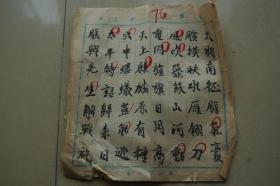 76
大將南征膽氣豪
腰橫秋水雁翎刀
風吹鼉鼓山河動
電閃旌旗日月高
天上麒麟原有種
穴中螻蟻豈能逃
太平待詔歸來日
朕與先生解戰袍